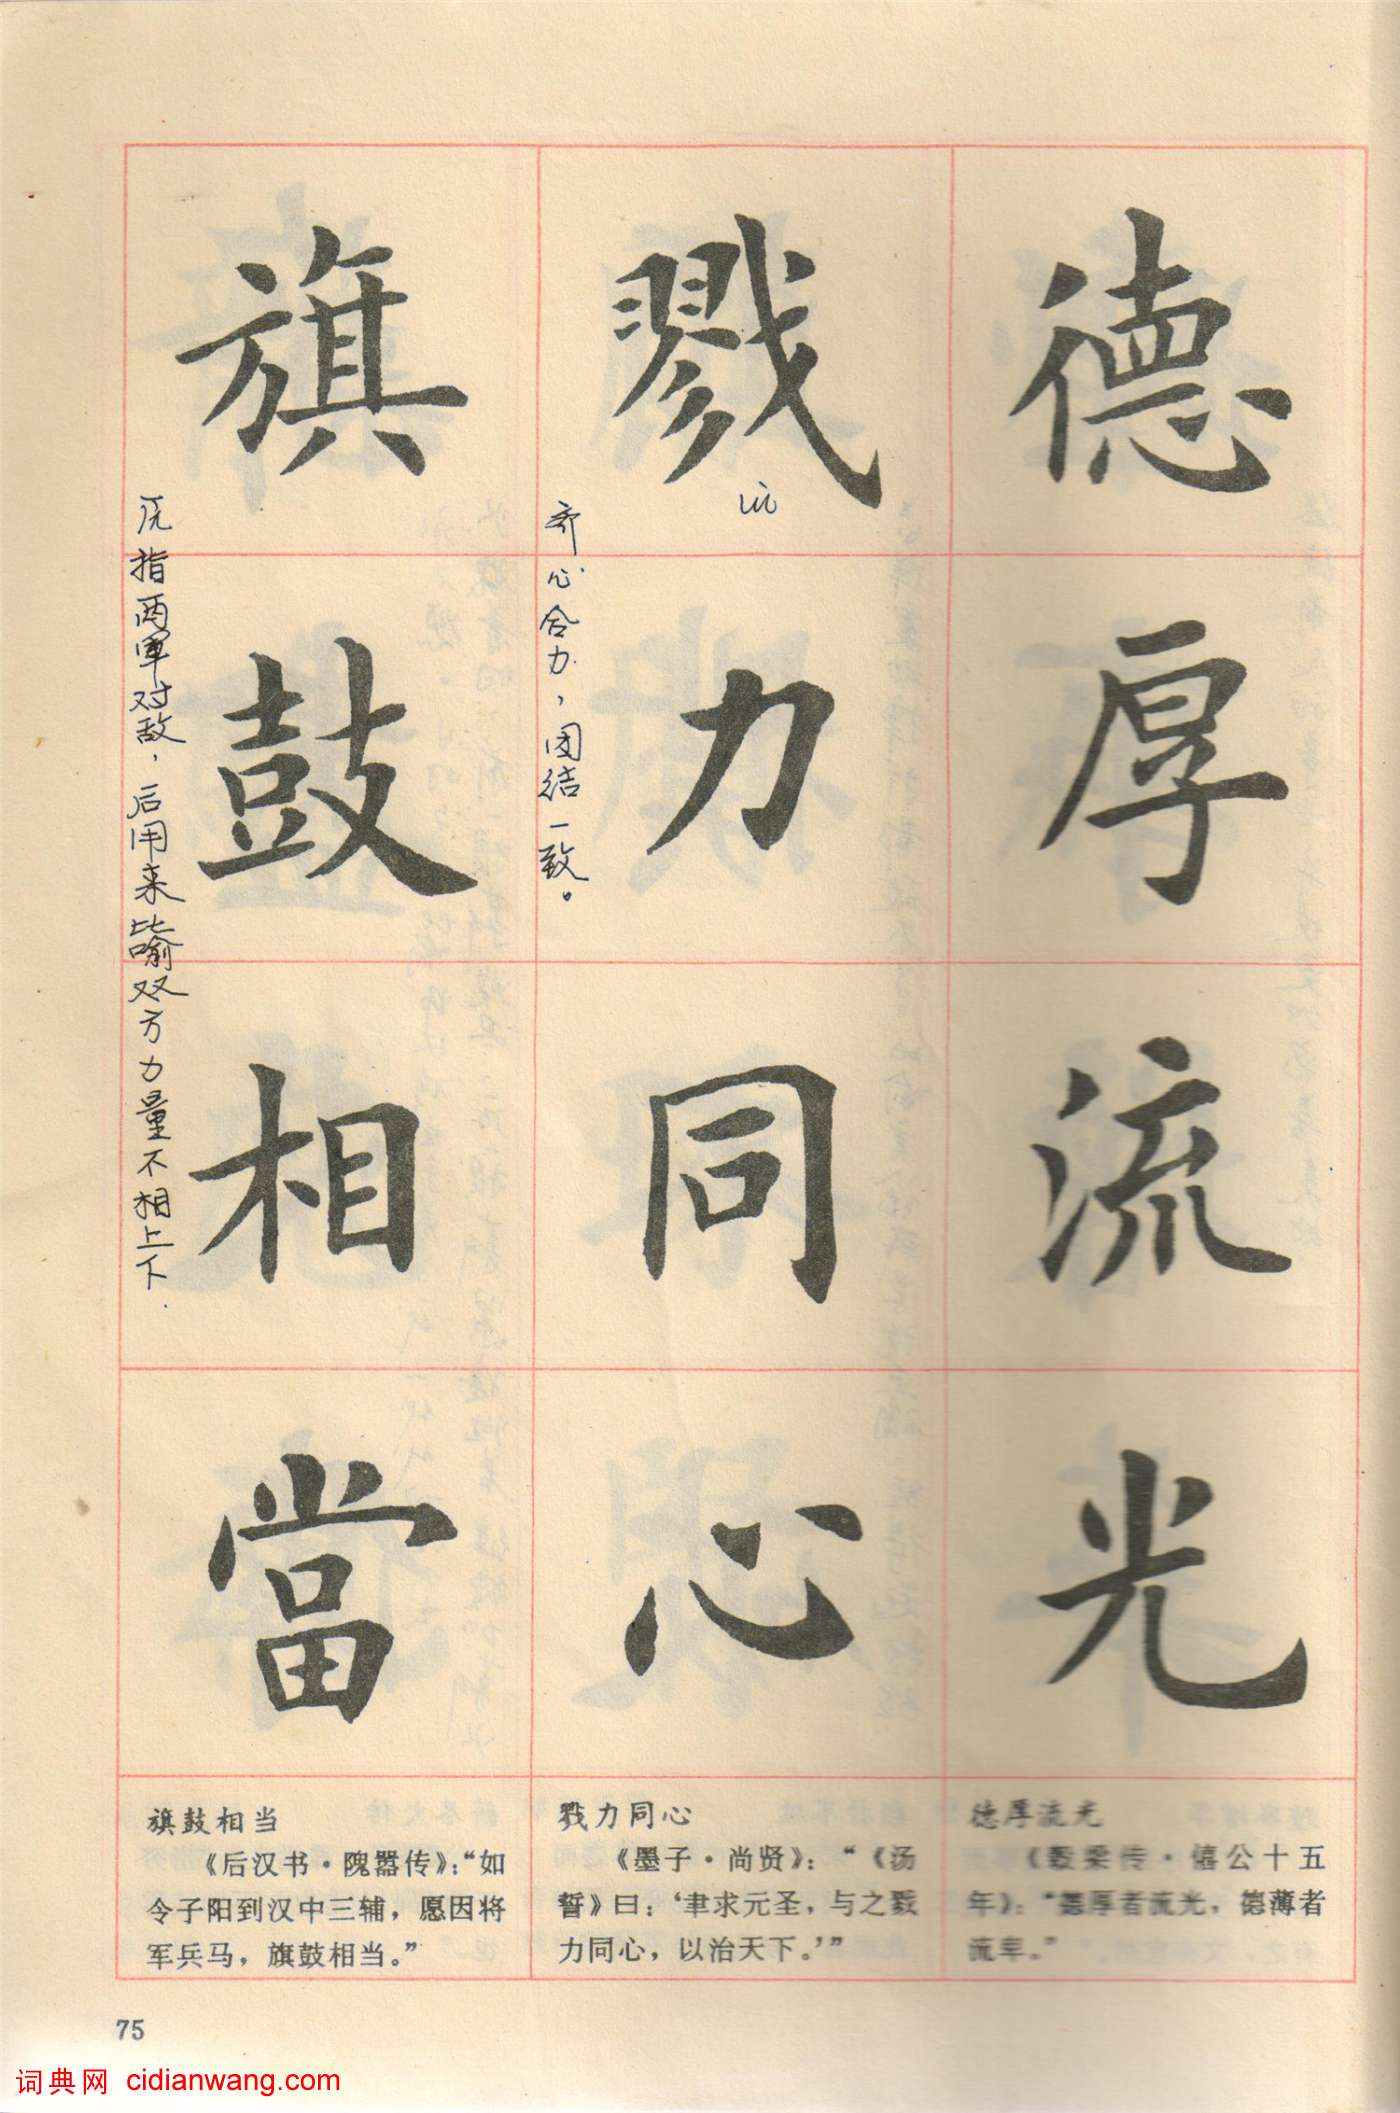 德厚流光
戮力同心
旗鼓相當
齐心合力，团结一致。
原指两軍对敌，后用来比喻双方力量不相上下.
德厚流光
《穀梁传·僖公十五
年》：“德厚者流光，德薄者
流卑。”
戮力同心
《墨子·尚贤》：“《汤
誓》曰：‘聿求元圣，与之戮
力同心，以治天下。’”
旗鼓相当
《后汉书·隗嚣传》：“如
令子阳到汉中三辅，愿因将
军兵马，旗鼓相当。”
75
词典网 cidianwang.com